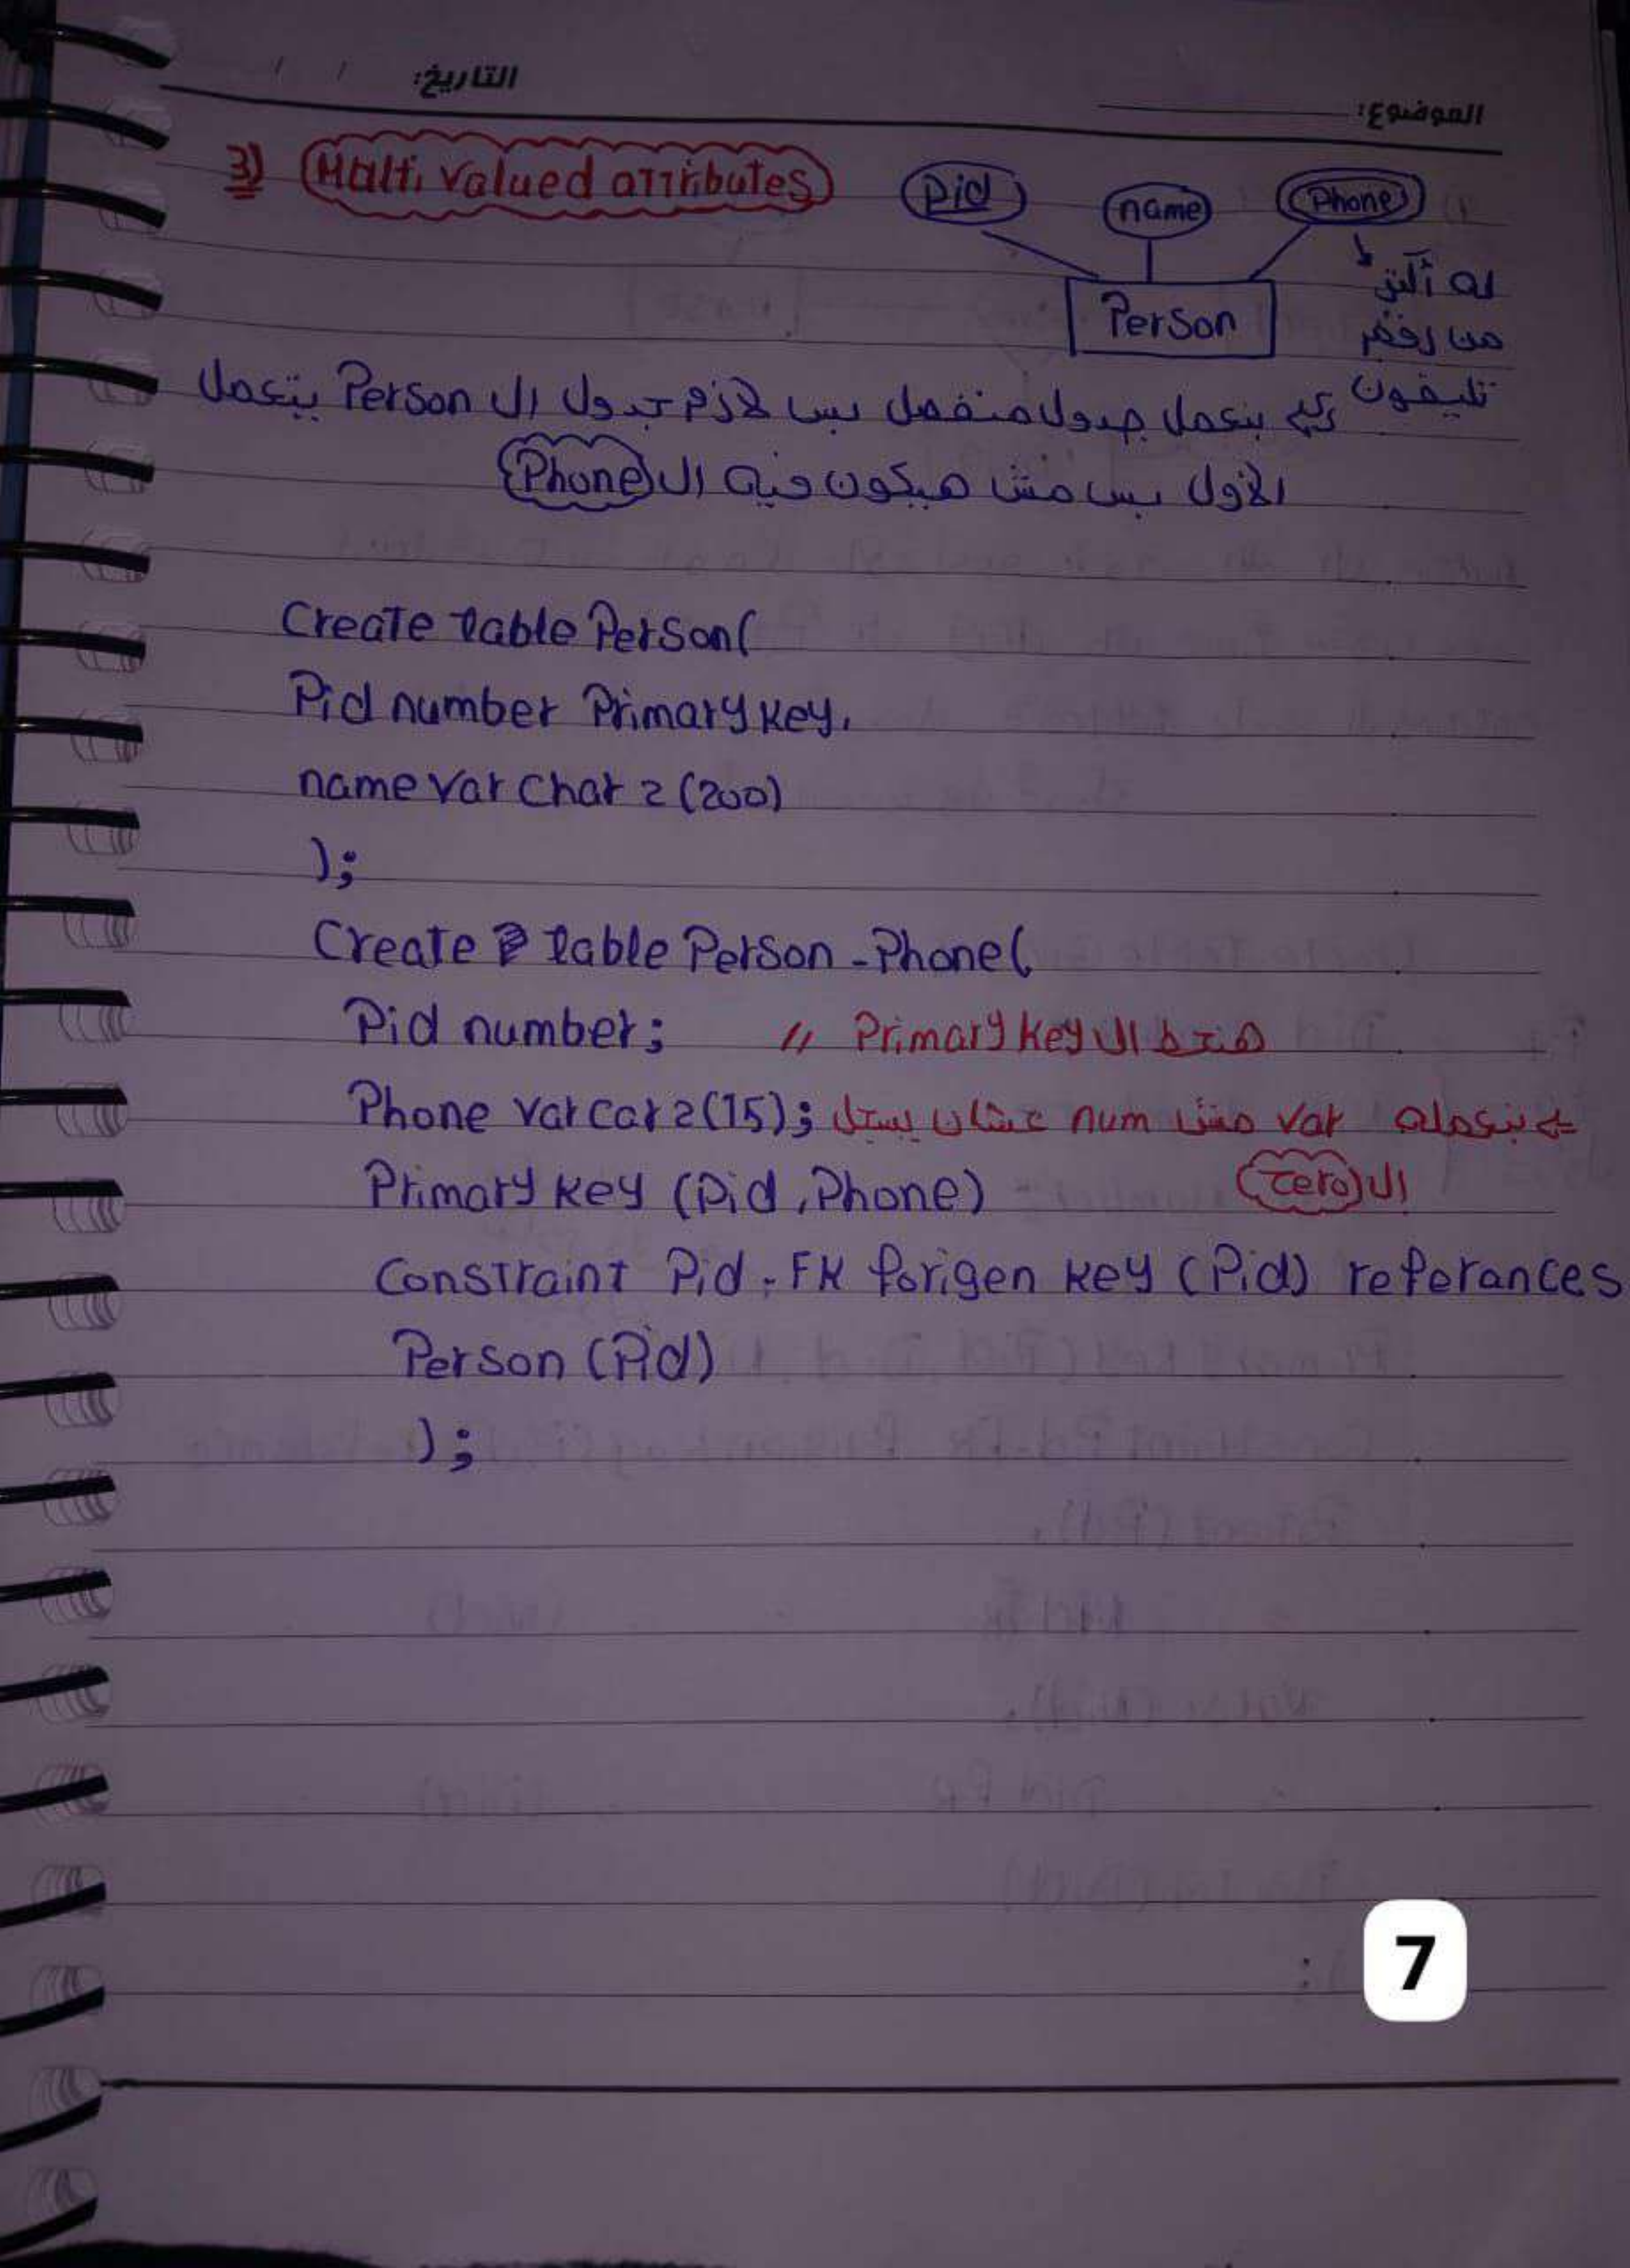 التاريخ: / /
الموضوع:
3) Malti valued attributes
Pid
name
Phone
Person
له أكتر
من رقم
تليفون
بنعمل جدول منفصل بس لازم جدول ال Person يتعمل
الأول بس مش هيكون فيه ال Phone
Create table Person(
Pid number Primary key,
name var char 2 (200)
);
Create table Person - Phone(
Pid number; // Primary key هنحط ال
Phone var car 2 (15); بنعمله var مش num عشان يسجل
ال zero
Primary key (Pid , Phone)
Constraint Pid - FK forigen key (Pid) referances
Person (Pid)
);
7